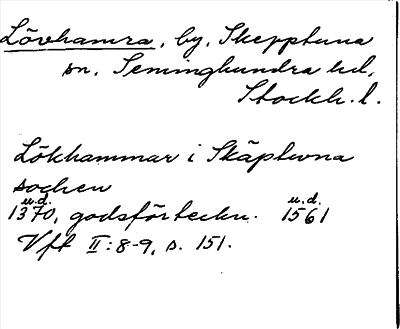 Lövhamra, by, Skepptuna
sn, Seminghundra hd,
Stockh. l.
Lökhammar i Skäptuna
socken
u.d. u.d.
1370, godsförteckn. 1561
Vft II:8-9, s. 151.